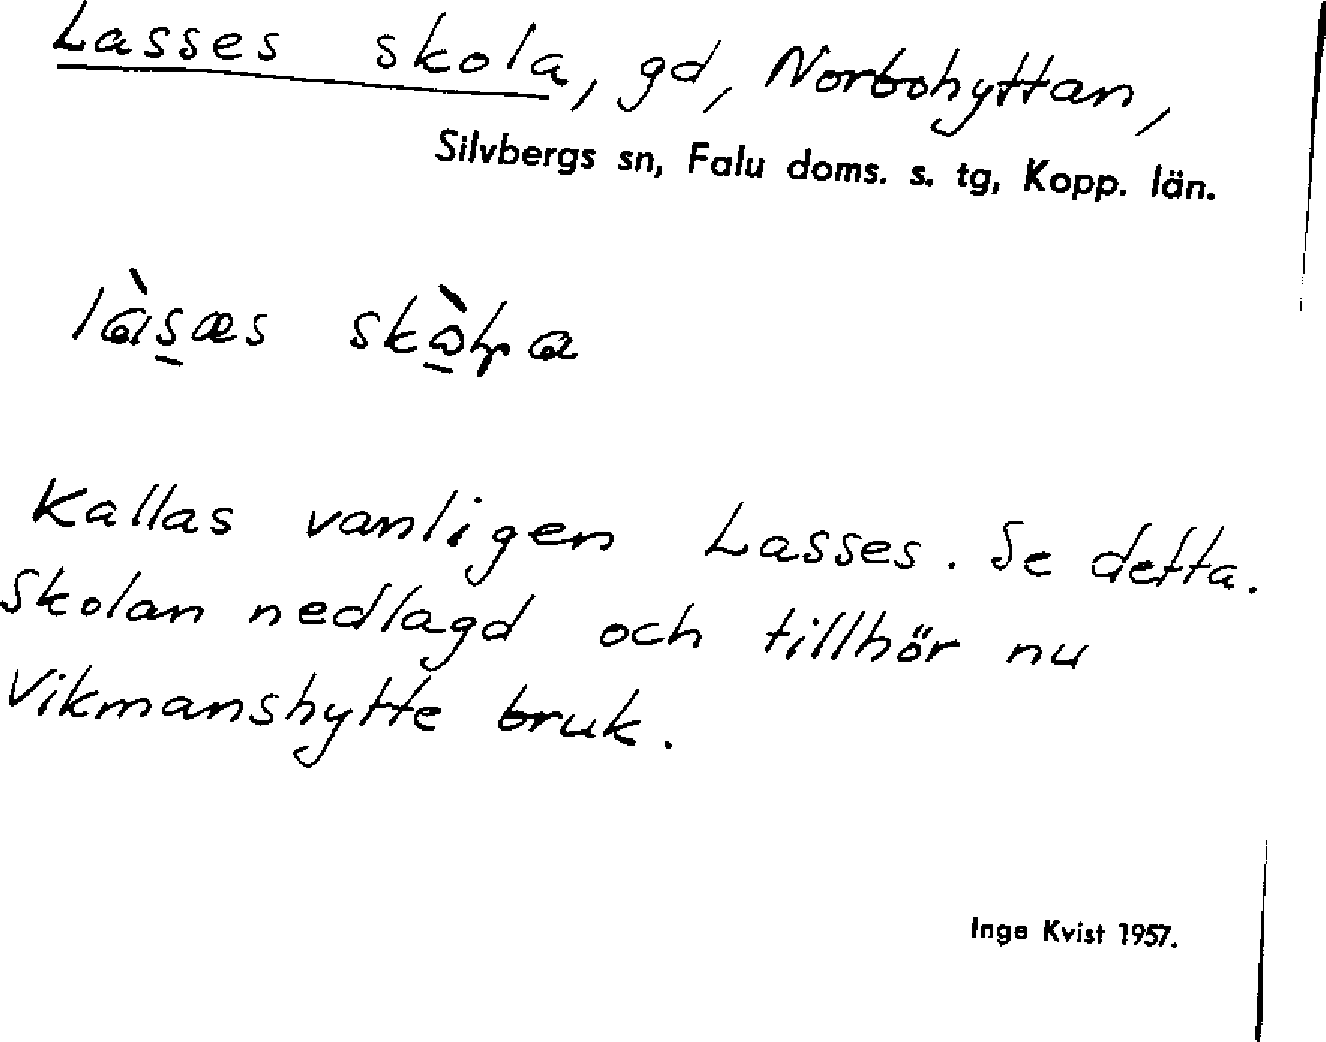 Lasses skola, gd, Norbohyttan,
Silvbergs sn, Falu doms. s. tg, Kopp. län.
Kallas vanligen Lasses. Se detta.
Skolan nedlagd och tillhör nu
Vikmanshytte bruk.
Inge Kvist 1957.